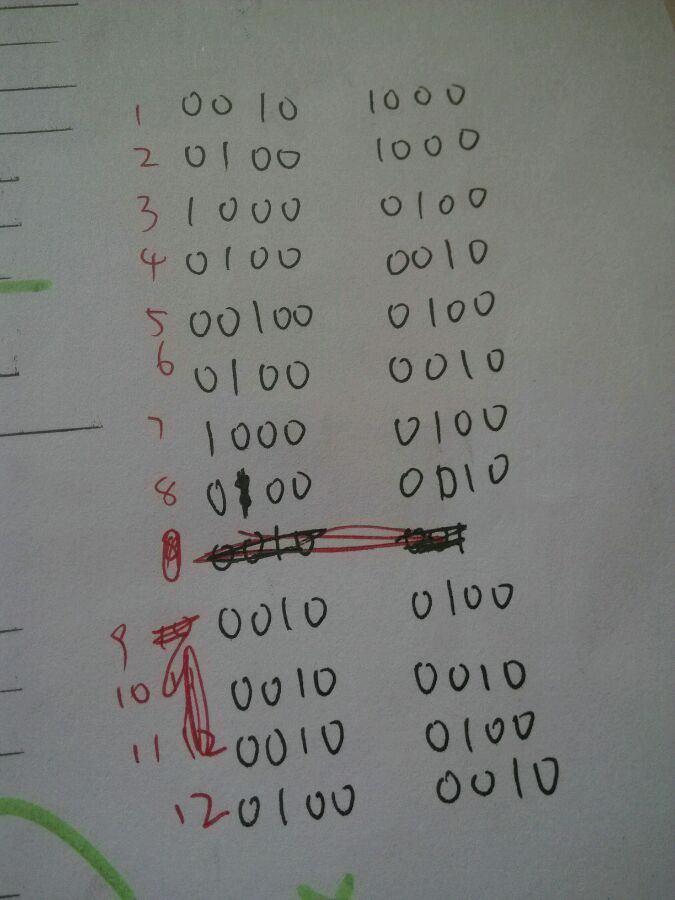 1 0010 1000
2 0100 1000
3 1000 0100
4 0100 0010
5 00100 0100
6 0100 0010
7 1000 0100
8 0100 0010
0010
9 0010 0100
10 0010 0010
11 0010 0100
12 0100 0010